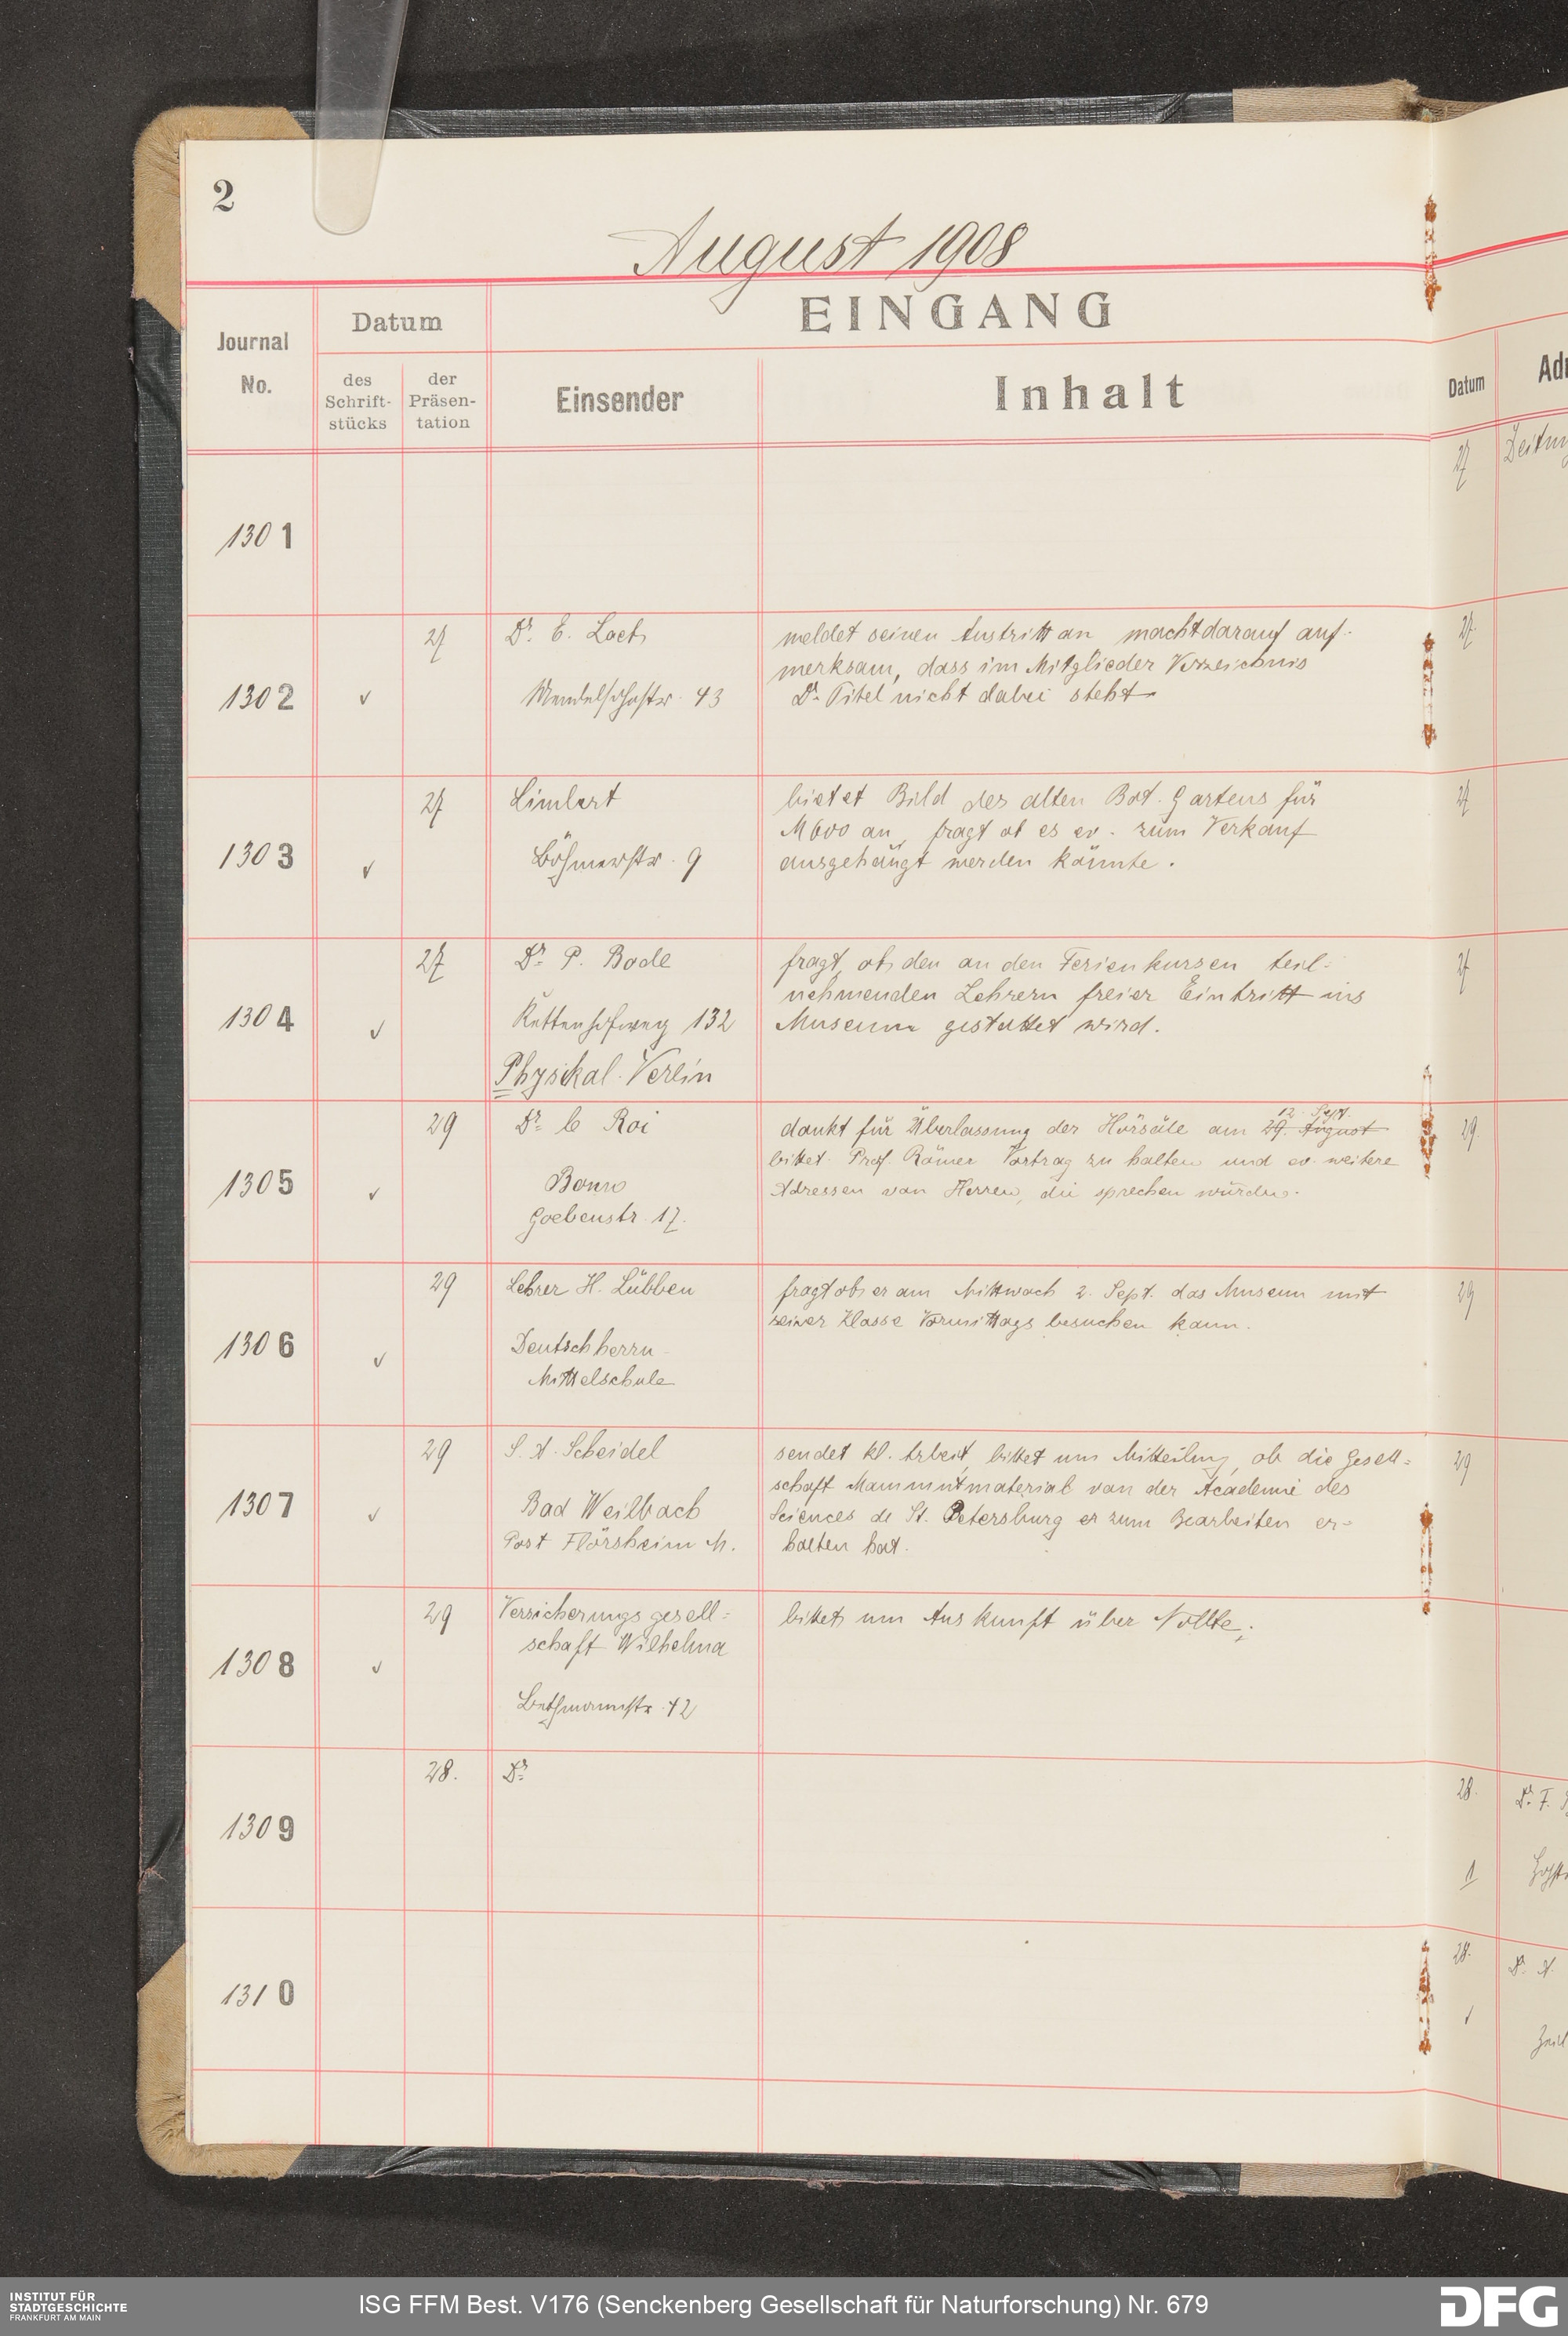 2
August 1908
EINGANG
Journal No.
Datum
des Schrift-
stücks
der Präsen-
tation
Einsender
Inhalt
Datum
27
1301
1302
✓
27
Dr. E.
Mendelssohnstr. 43
meldet seinen Austritt an macht darauf auf-
merksam, dass im Mitglieder Verzeichnis
Dr. Titel nicht dabei steht
27
1303
✓
27
Limbert
Böhmerstr. 9
bietet Bild des alten Bot. Gartens für
M 600 an, fragt ob es ev. zum Verkauf
ausgehängt werden könnte.
27
1304
✓
27
Dr. P. Bode
Kettenhofweg 132
Physikal. Verein
fragt, ob den an den Ferienkursen teil-
nehmenden Lehrern freier Eintritt ins
Museum gestattet wird.
27
1305
✓
29
Dr. le Roi
Bonn
Goebenstr. 17.
12. Sept.
dankt für Überlassung der Hörsäle am 29. August
bittet Prof. Römer Vortrag zu halten und ev. weitere
Adressen von Herren, die sprechen würden.
29
1306
✓
29
Lehrer H. Lübben
Deutschherrn-
Mittelschule
fragt ob er am Mittwoch 2. Sept. das Museum mit
seiner Klasse Vormittags besuchen kann.
29
1307
✓
29
S. A. Scheidel
Bad Weilbach
Post Flörsheim M.
sendet kl. Arbeit, bittet um Mitteilung, ob die Gesell=
schaft Mammutmaterial von der Academie des
Sciences de St. Petersburg er zum Bearbeiten er=
halten hat.
29
1308
✓
29
Versicherungsgesell=
schaft Wilhelma
Bethmannstr. 42
bittet um Auskunft über Nollte;
1309
28.
Dr.
28.
Dr. F.
1
1310
28.
Dr. A.
✓
INSTITUT FÜR
STADTGESCHICHTE
FRANKFURT AM MAIN
ISG FFM Best. V176 (Senckenberg Gesellschaft für Naturforschung) Nr. 679
DFG